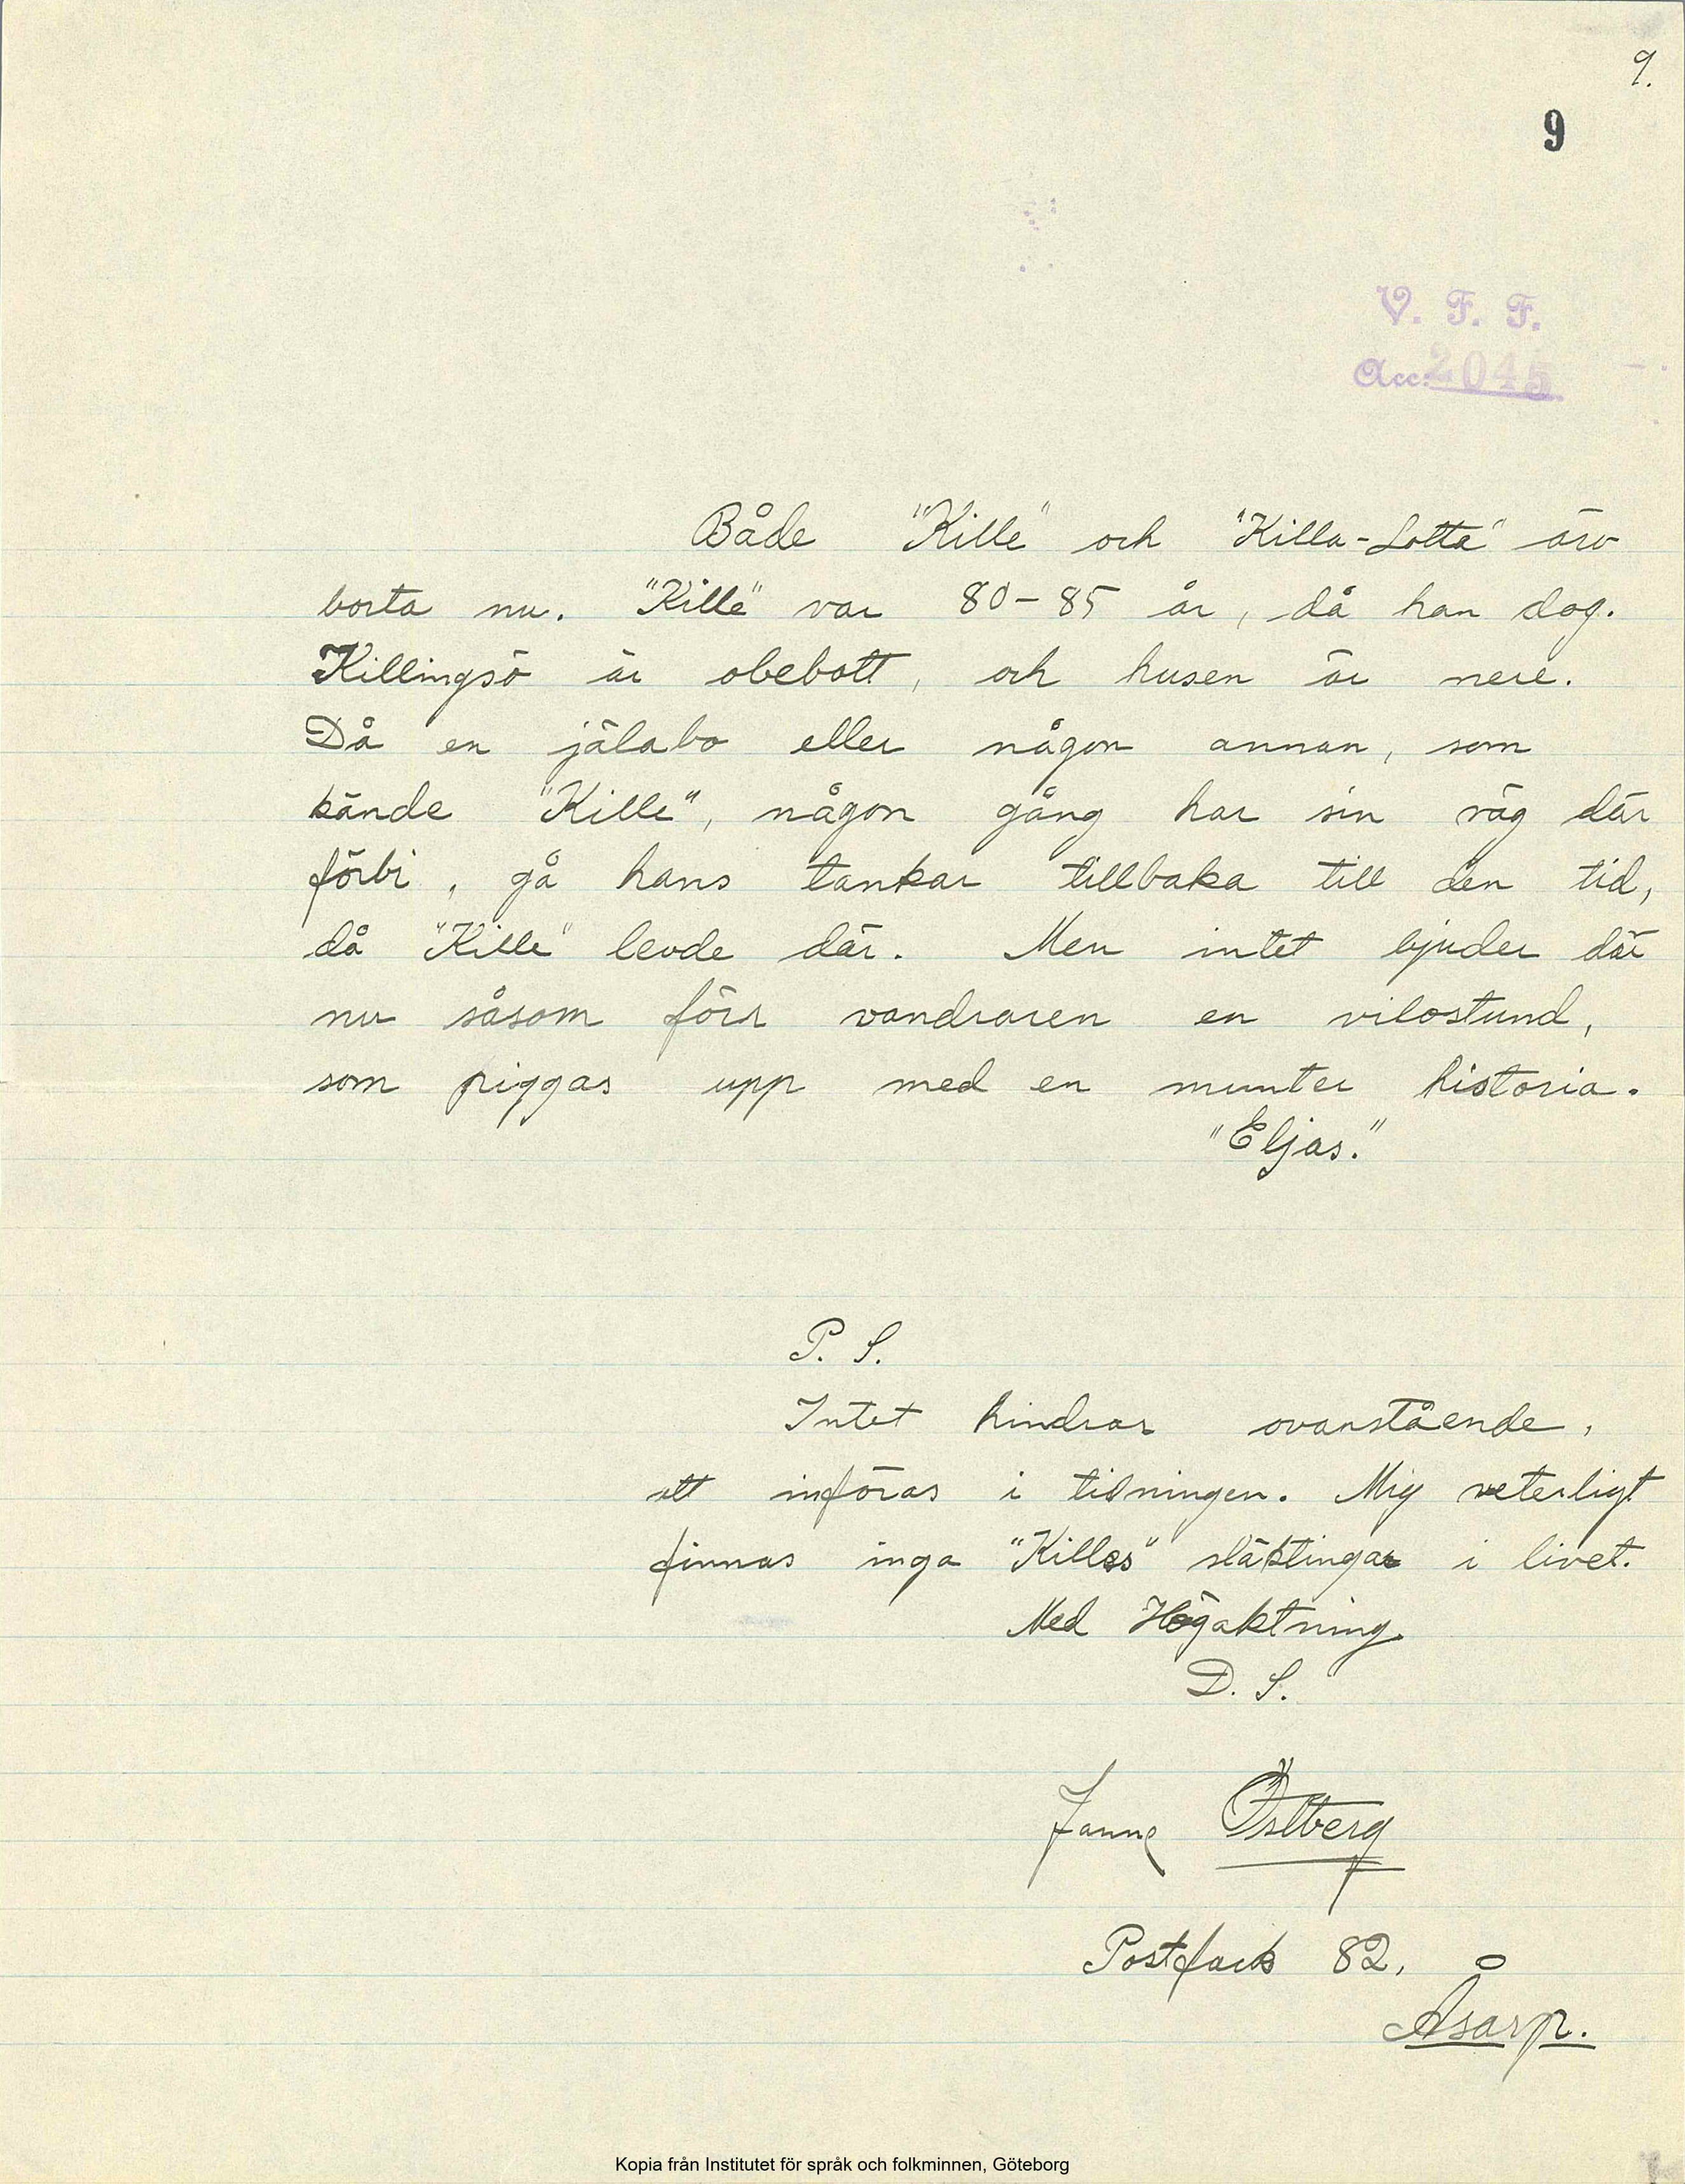 9.
9
V. F. F.
Acc. 2045
Både "Kille" och "Killa-Lotta" äro
borta nu. "Kille" var 80-85 år, då han dog.
Killingsö är obebott, och husen är nere.
Då en jälabo eller någon annan, som
kände "Kille", någon gång har sin väg där
förbi, gå hans tankar tillbaka till den tid,
då "Kille" levde där. Men intet bjuder där
nu såsom förr vandraren en vilostund,
som piggas upp med en munter historia.
"Eljas."
P. S.
Intet hindrar ovanstående,
att införas i tidningen. Mig veterligt
finnas inga "Killes" släktingar i livet.
Med Högaktning
D. S.
Janne Östberg
Postfack 82,
Åsarp.
Kopia från Institutet för språk och folkminnen, Göteborg